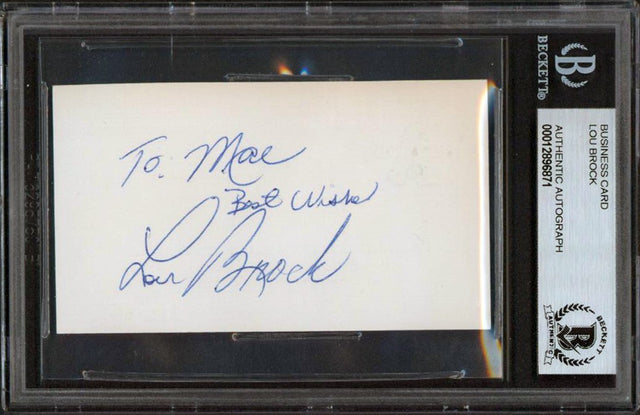 To. Mae
Best Wishes
Lou Brock
BECKETT
BUSINESS CARD
LOU BROCK
AUTHENTIC AUTOGRAPH
00012896871
BECKETT
AUTHENTIC